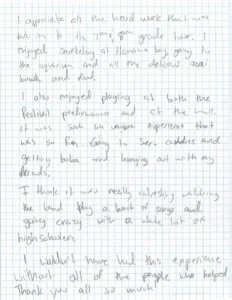 I appreciate all the hard work that was
put in to the 7th and 8th grade tour. I
enjoyed snorkeling at Hanauma bay, going to
the aquarium and all the delicious acai
bowls and food.
I also enjoyed playing at both the
festival performance and at the mall.
It was such an unique experience that
was so fun. Going to Sees candies and
getting boba and hanging out with my
friends.
I think it was really refreshing watching
the band play a bunch of songs and
going crazy with a whole lot of
highschoolers
I wouldn't have had this experience
without all of the people who helped
Thank you all so much!